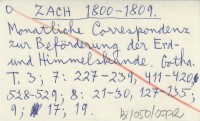 O. ZACH 1800-1809.
Monatliche Correspondenz
zur Beförderung der Erd-
und Himmelskunde. Gotha.
T. 3; 7: 227-231, 411-420,
528-529; 8: 21-30, 127-135;
9; 17; 19.
bj/050/0772